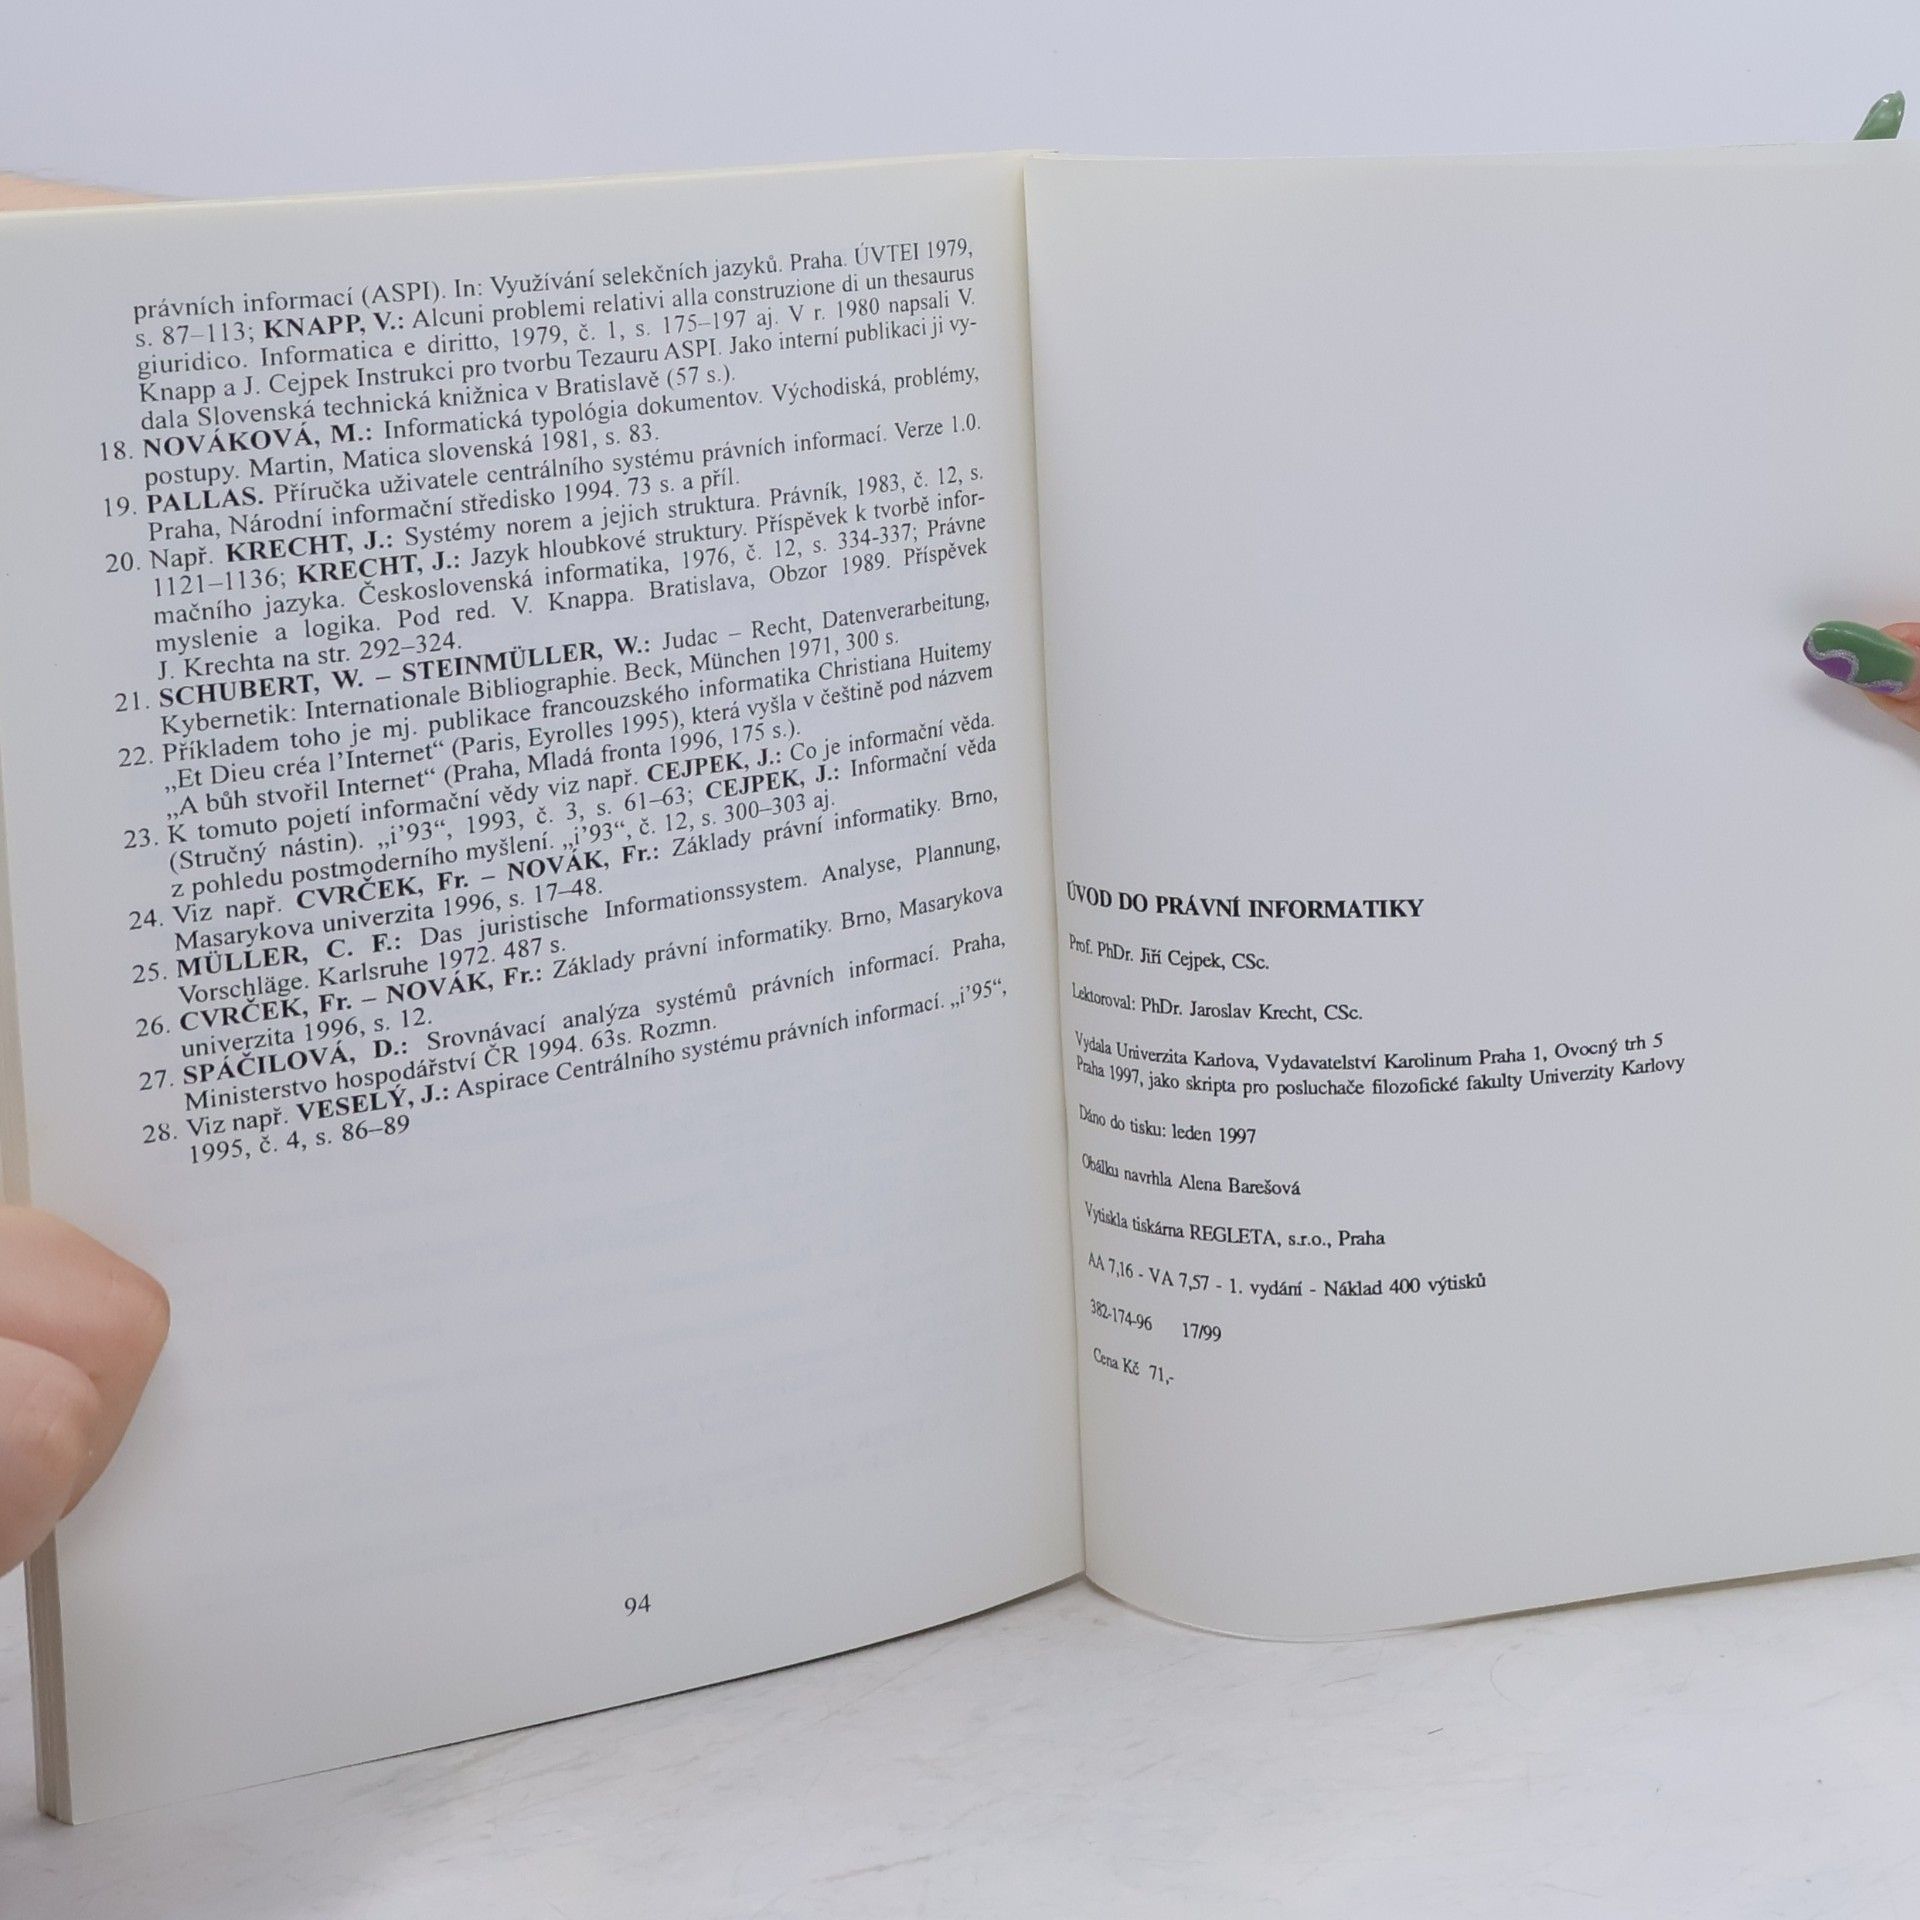 právních informací (ASPI). In: Využívání selekčních jazyků. Praha. ÚVTEI 1979,
s. 87–113; KNAPP, V.: Alcuni problemi relativi alla construzione di un thesaurus
giuridico. Informatica e diritto, 1979, č. 1, s. 175–197 aj. V r. 1980 napsali V.
Knapp a J. Cejpek Instrukci pro tvorbu Tezauru ASPI. Jako interní publikaci ji vy-
dala Slovenská technická knižnica v Bratislavě (57 s.).
18. NOVÁKOVÁ, M.: Informatická typológia dokumentov. Východiská, problémy,
postupy. Martin, Matica slovenská 1981, s. 83.
19. PALLAS. Příručka uživatele centrálního systému právních informací. Verze 1.0.
Praha, Národní informační středisko 1994. 73 s. a příl.
20. Např. KRECHT, J.: Systémy norem a jejich struktura. Právník, 1983, č. 12, s.
1121–1136; KRECHT, J.: Jazyk hloubkové struktury. Příspěvek k tvorbě infor-
mačního jazyka. Československá informatika, 1976, č. 12, s. 334-337; Právne
myslenie a logika. Pod red. V. Knappa. Bratislava, Obzor 1989. Příspěvek
J. Krechta na str. 292–324.
21. SCHUBERT, W. – STEINMÜLLER, W.: Judac – Recht, Datenverarbeitung,
Kybernetik: Internationale Bibliographie. Beck, München 1971, 300 s.
22. Příkladem toho je mj. publikace francouzského informatika Christiana Huitemy
„Et Dieu créa l’Internet“ (Paris, Eyrolles 1995), která vyšla v češtině pod názvem
„A bůh stvořil Internet“ (Praha, Mladá fronta 1996, 175 s.).
23. K tomuto pojetí informační vědy viz např. CEJPEK, J.: Co je informační věda.
(Stručný nástin). „i’93“, 1993, č. 3, s. 61–63; CEJPEK, J.: Informační věda
z pohledu postmoderního myšlení. „i’93“, č. 12, s. 300–303 aj.
24. Viz např. CVRČEK, Fr. – NOVÁK, Fr.: Základy právní informatiky. Brno,
Masarykova univerzita 1996, s. 17–48.
25. MÜLLER, C. F.: Das juristische Informationssystem. Analyse, Plannung,
Vorschläge. Karlsruhe 1972. 487 s.
26. CVRČEK, Fr. – NOVÁK, Fr.: Základy právní informatiky. Brno, Masarykova
univerzita 1996, s. 12.
27. SPÁČILOVÁ, D.: Srovnávací analýza systémů právních informací. Praha,
Ministerstvo hospodářství ČR 1994. 63s. Rozmn.
28. Viz např. VESELÝ, J.: Aspirace Centrálního systému právních informací. „i’95“,
1995, č. 4, s. 86–89
94
ÚVOD DO PRÁVNÍ INFORMATIKY
Prof. PhDr. Jiří Cejpek, CSc.
Lektoroval: PhDr. Jaroslav Krecht, CSc.
Vydala Univerzita Karlova, Vydavatelství Karolinum Praha 1, Ovocný trh 5
Praha 1997, jako skripta pro posluchače filozofické fakulty Univerzity Karlovy
Dáno do tisku: leden 1997
Obálku navrhla Alena Barešová
Vytiskla tiskárna REGLETA, s.r.o., Praha
AA 7,16 - VA 7,57 - 1. vydání - Náklad 400 výtisků
382-174-96 17/99
Cena Kč 71,-